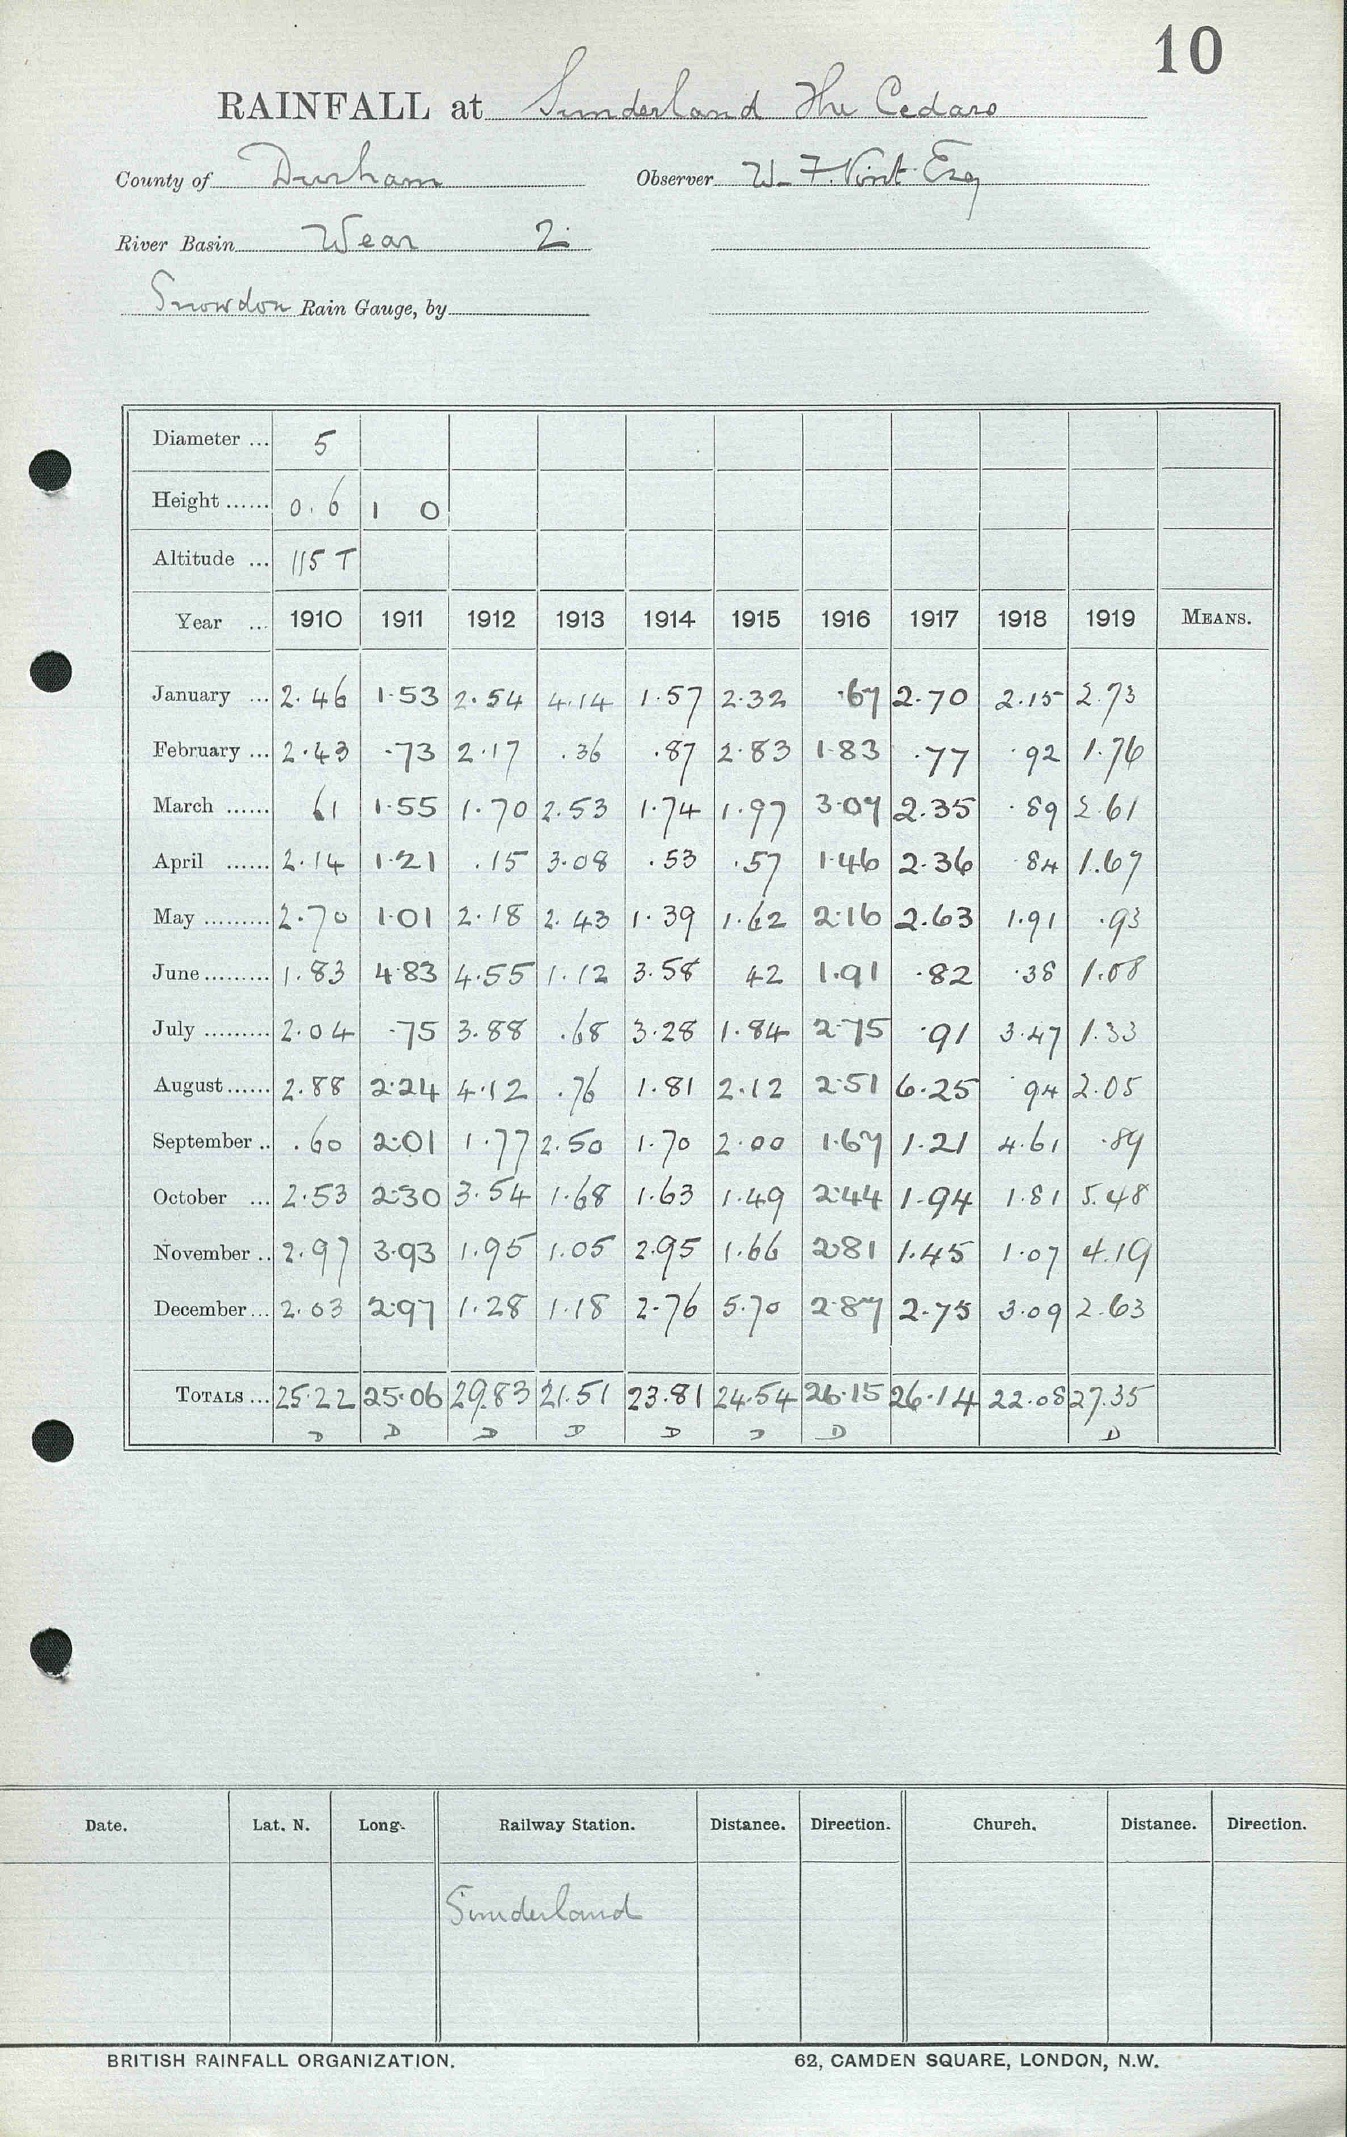 10
RAINFALL at Sunderland The Cedars
County of Durham Observer W. F. Vint Esq
River Basin Wear 2
Snowdon Rain Gauge, by
Diameter ... 5
Height ...... 0.6 1 0
Altitude ... 115 T
Year ... 1910 1911 1912 1913 1914 1915 1916 1917 1918 1919 MEANS.
January ... 2.46 1.53 2.54 4.14 1.57 2.32 .67 2.70 2.15 2.73
February ... 2.43 .73 2.17 .36 .87 2.83 1.83 .77 .92 1.76
March ...... .61 1.55 1.70 2.53 1.74 1.97 3.07 2.35 .89 2.61
April ...... 2.14 1.21 .15 3.08 .53 .57 1.46 2.36 .84 1.67
May ......... 2.70 1.01 2.18 2.43 1.39 1.62 2.16 2.63 1.91 .93
June ......... 1.83 4.83 4.55 1.12 3.58 42 1.91 .82 .38 1.08
July ......... 2.04 .75 3.88 .68 3.28 1.84 2.75 .91 3.47 1.33
August ...... 2.88 2.24 4.12 .76 1.81 2.12 2.51 6.25 .94 2.05
September .. .60 2.01 1.77 2.50 1.70 2.00 1.67 1.21 4.61 .89
October ... 2.53 2.30 3.54 1.68 1.63 1.49 2.44 1.94 1.81 5.48
November .. 2.97 3.93 1.95 1.05 2.95 1.66 2.81 1.45 1.07 4.19
December ... 2.03 2.97 1.28 1.18 2.76 5.70 2.87 2.75 3.09 2.63
TOTALS ... 25.22 25.06 29.83 21.51 23.81 24.54 26.15 26.14 22.08 27.35
D D D D D D D D
Date. Lat. N. Long. Railway Station. Distance. Direction. Church. Distance. Direction.
Sunderland
BRITISH RAINFALL ORGANIZATION. 62, CAMDEN SQUARE, LONDON, N.W.